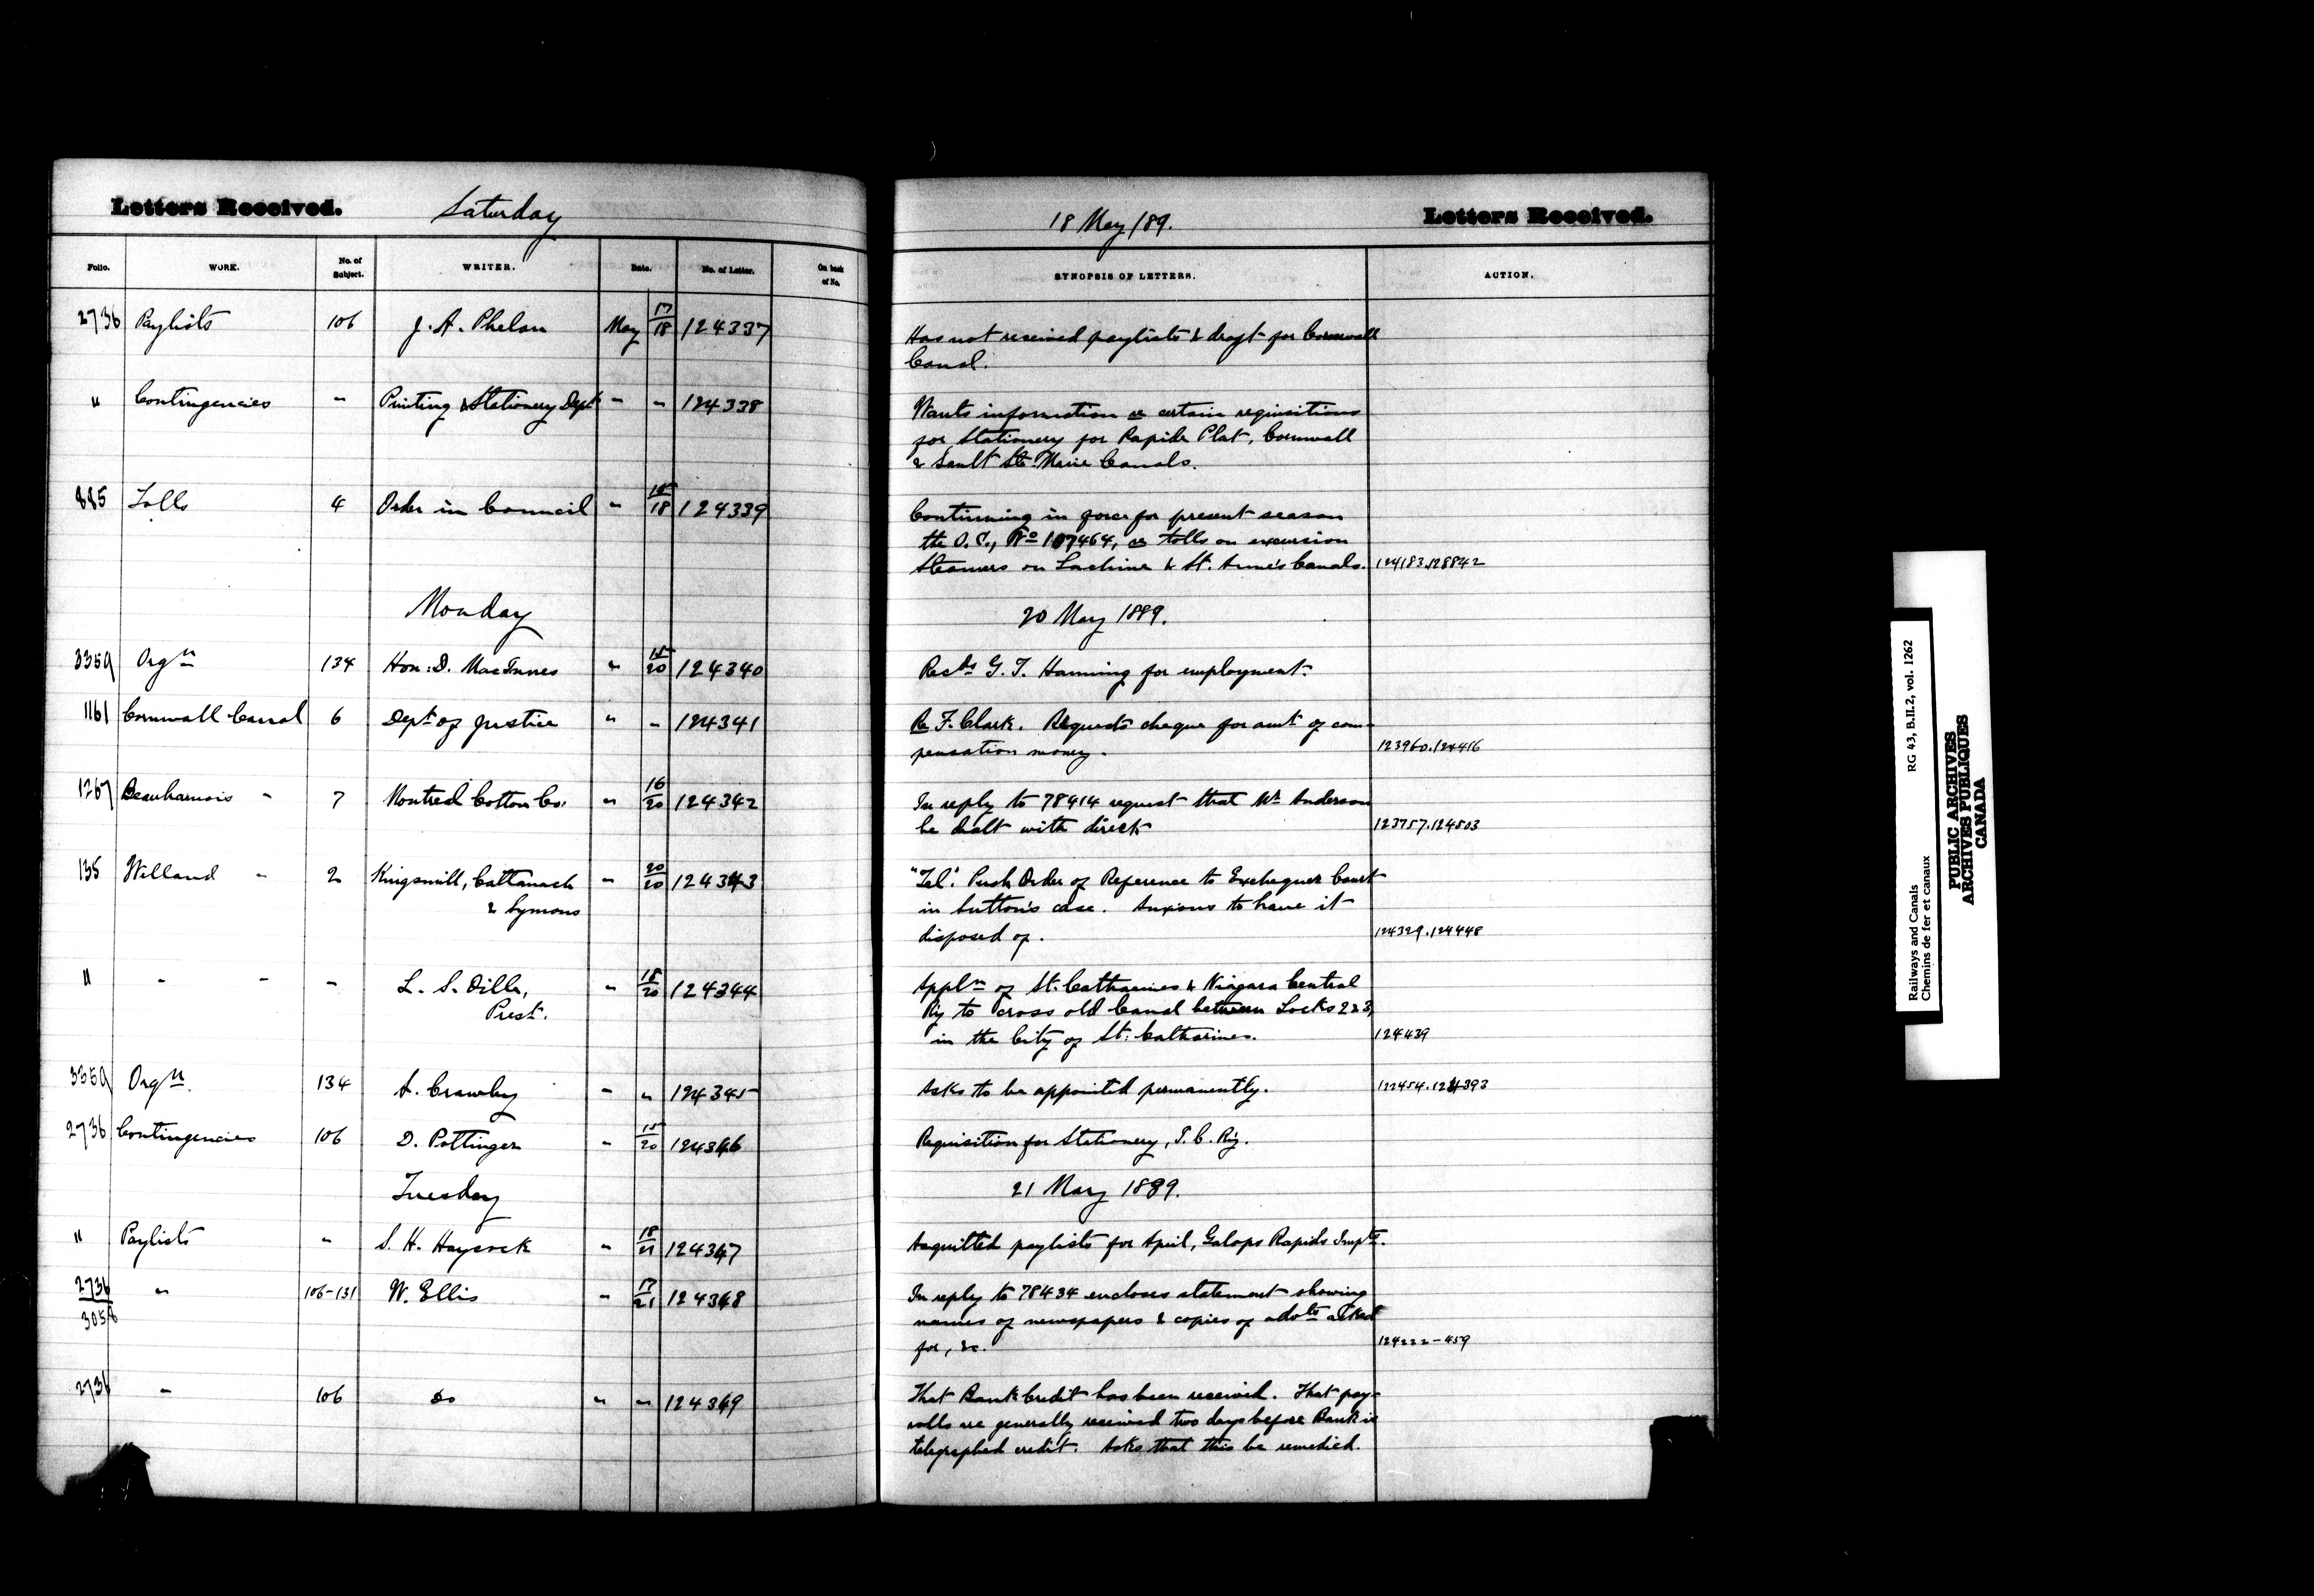 Letters Received. Saturday 18 May /89. Letters Received.
Folio. WORK. No. of Subject. WRITER. Date. No. of Letter. On back of No. SYNOPSIS OF LETTERS. ACTION.
2736 Paylists 106 J. A. Phelan May 17/18 124337 Has not received paylists & draft for Cornwall
Canal.
" Contingencies " Printing & Stationery Dept " " 124338 Wants information re certain requisitions
for Stationery for Rapide Plat, Cornwall
& Sault Ste. Marie Canals.
885 Tolls 4 Order in Council " 15/18 124339 Continuing in force for present season
the O.C., No 107464, re tolls on excursion
Steamers on Lachine & St. Anne's Canals. 124183.128842
Monday 20 May 1889.
3359 Orgn 134 Hon: D. MacInnes " 15/20 124340 Recds G. T. Hanning for employment.
1161 Cornwall Canal 6 Dept of Justice " " 124341 Re F. Clark. Requests cheque for amt of com-
pensation money. 123960.124416
1267 Beauharnois " 7 Montreal Cotton Co. " 16/20 124342 In reply to 78414 request that Mr Anderson
be dealt with direct 123757.124503
135 Welland " 2 Kingsmill, Cattanach " 20/20 124343 "Tel". Push Order of Reference to Exchequer Court
& Symons in Sutton's case. Anxious to have it
disposed of. 124329.124448
" " " " L. S. Oille, " 18/20 124344 Appln of St. Catharines & Niagara Central
Prest. Ry to cross old Canal between Locks 2 & 3,
in the City of St. Catharines. 124439
3359 Orgn. 134 A. Crawley " " 124345 Asks to be appointed permanently. 122454.124393
2736 Contingencies 106 D. Pottinger " 15/20 124346 Requisition for Stationery, I. C. Ry.
Tuesday 21 May 1889.
" Paylists " S. H. Haycock " 18/21 124347 Acquitted paylists for April, Galops Rapids Impts.
2736/3058 " 106-131 W. Ellis " 17/21 124348 In reply to 78434 encloses statement showing
names of newspapers & copies of advts asked
for, &c. 124222-459
2736 " 106 do " " 124349 That Bank Credit has been received. That pay-
rolls are generally received two days before Bank is
telegraphed credit. Asks that this be remedied.
Railways and Canals RG 43, B.II.2, vol. 1262
Chemins de fer et canaux
PUBLIC ARCHIVES
ARCHIVES PUBLIQUES
CANADA